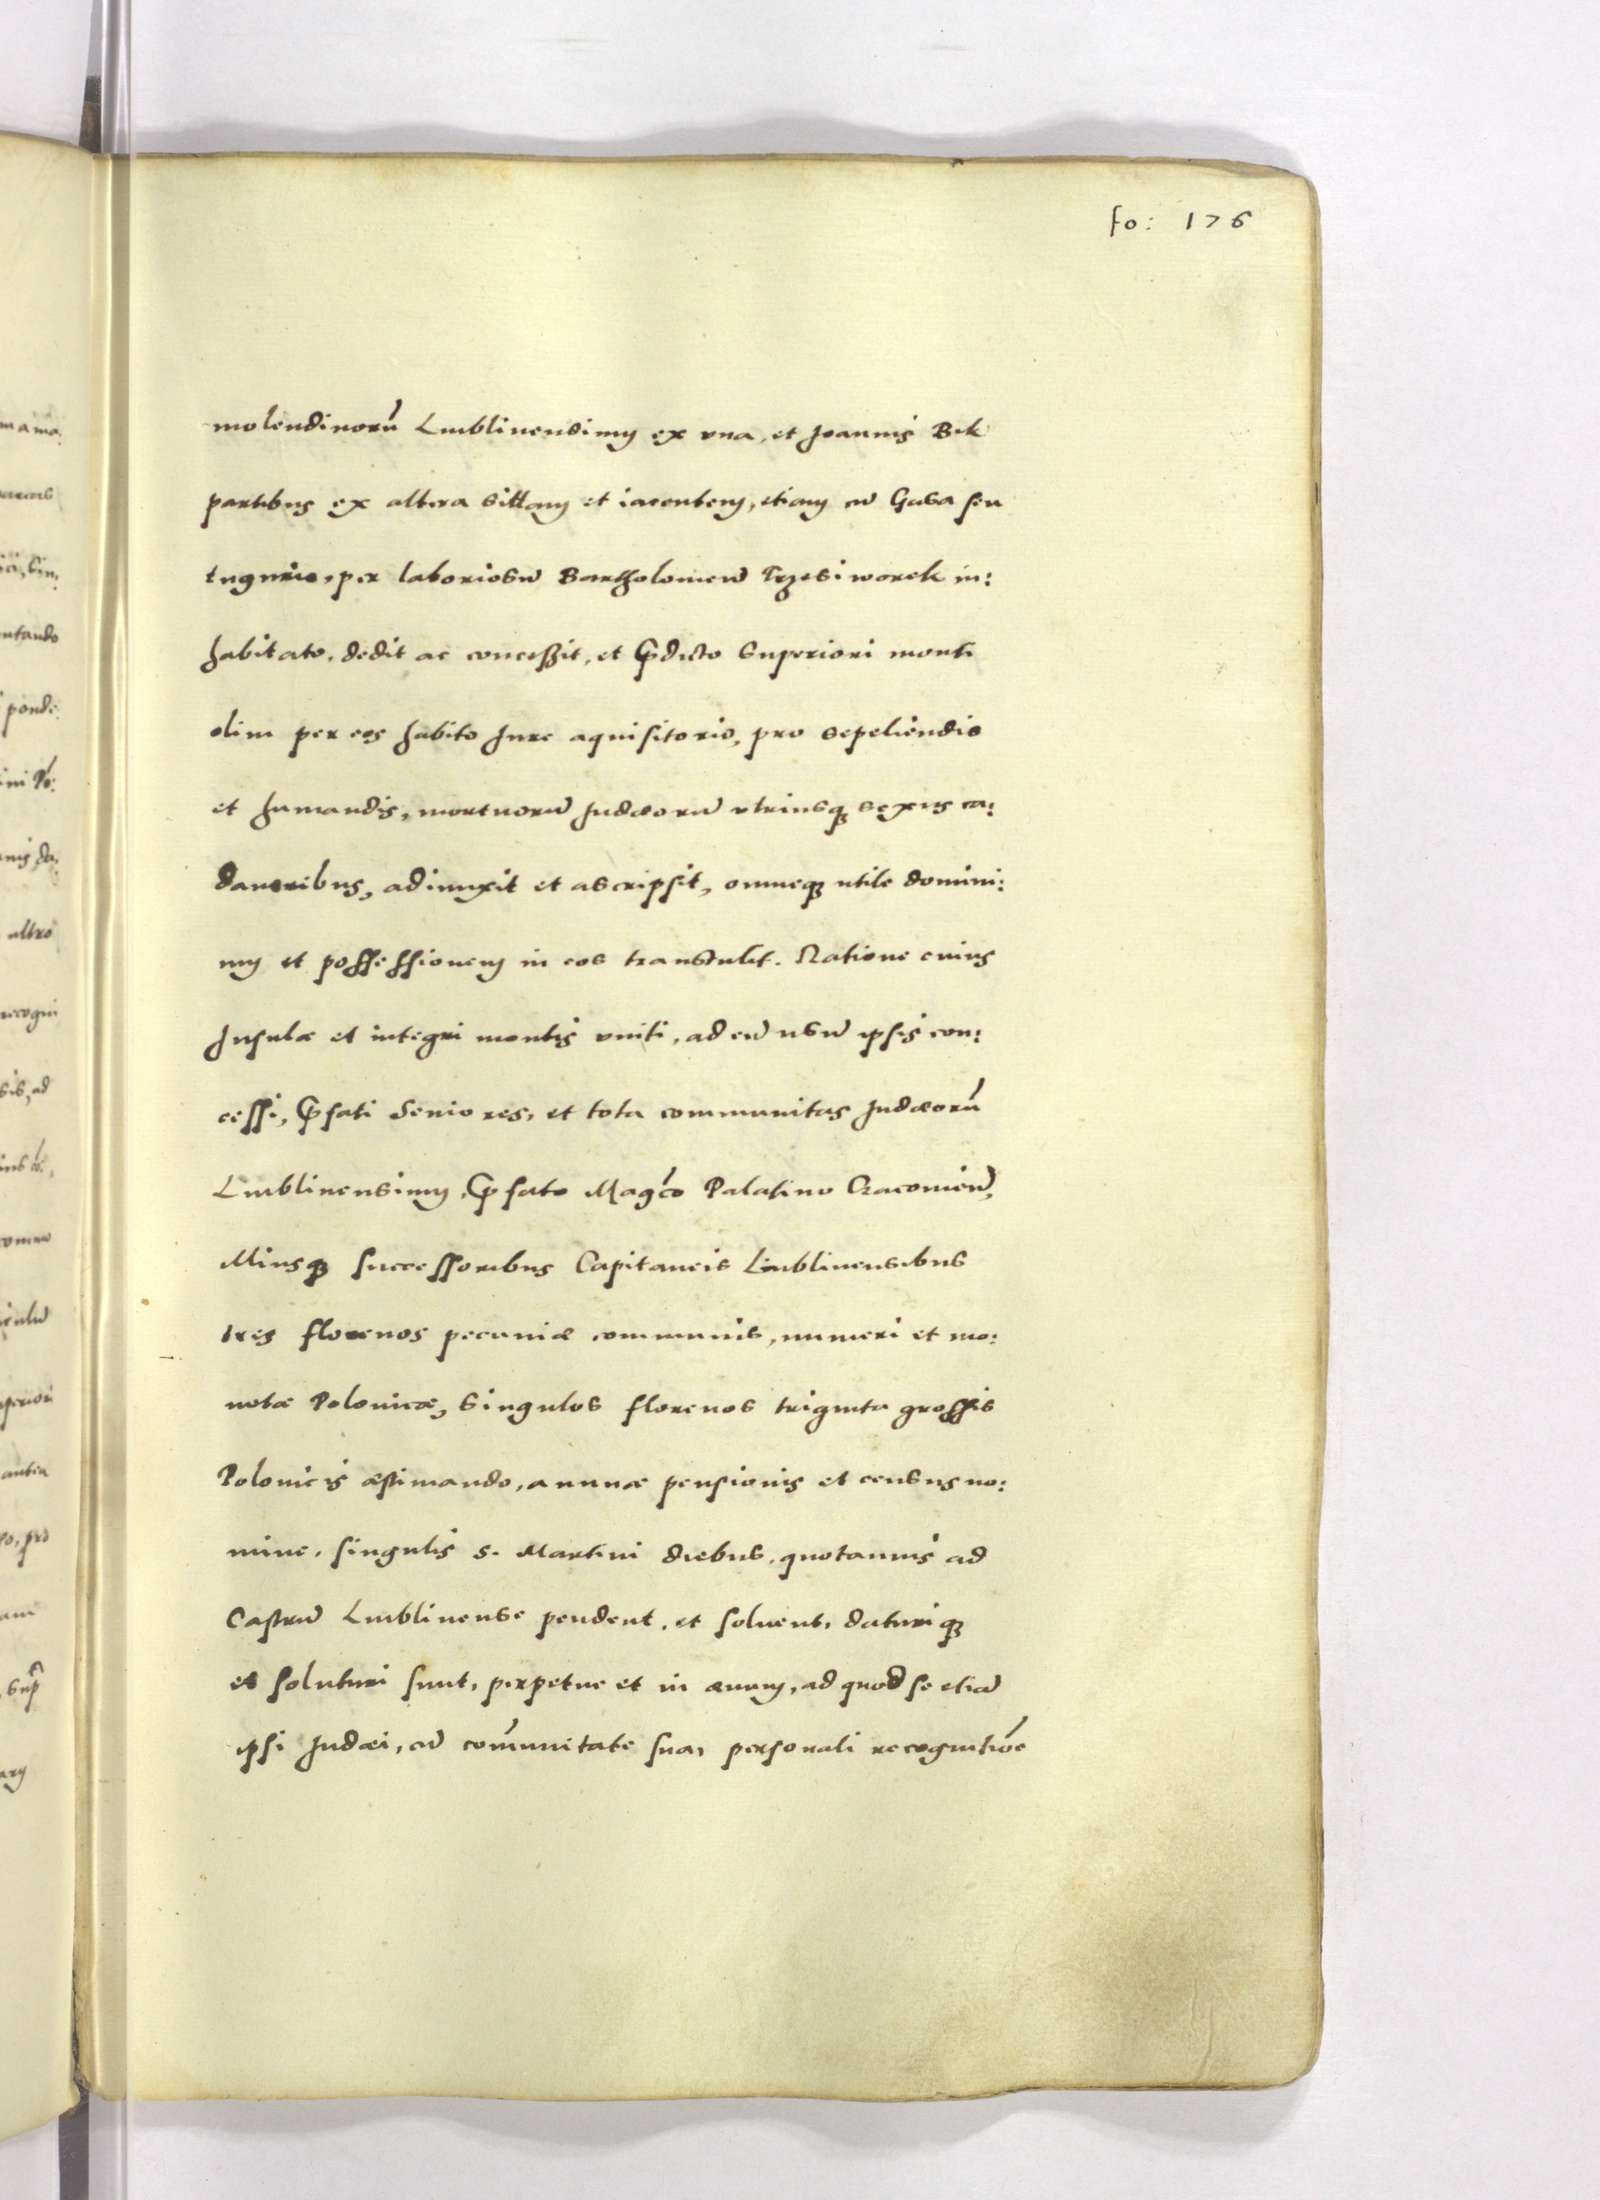 fo: 176
molendinorũ Lublinensium ex vna, et Joannis Bek
partibus ex altera sittam et iacentem, etiam cũ Gasa seu
tugurio, per laboriosũ Bartholomeũ Trzesiworek in:
habitato, dedit ac conceßit, et p̃dicto superiori monti
olim per eos habito Jure aquisitorio, pro sepeliendis
et humandis, mortuorũ Judæorũ vtriusq; sexus ca:
daueribus, adiunxit et ascripsit, omneq; utile domini:
um et possessionem in eos transtulit. Ratione cuius
Insulæ et integri montis vniti, ad eũ usũ ipsis con:
cessi, p̃fati Seniores, et tota communitas Judæorũ
Lublinensium, p̃fato Mag̃co Palatino Cracovieñ,
Illiusq; successoribus Capitaneis Lublinensibus
tres florenos pecuniæ communis, numeri et mo:
netæ Polonicæ, singulos florenos triginta grossis
Polonicis æstimando, annuæ pensionis et census no:
mine, singulis s. Martini diebus, quotannis ad
Castrũ Lublinense pendent, et soluent, daturiq;
et soluturi sunt, perpetue et in æuum, ad quod se etiã
ipsi Judæi, cũ com̃unitate sua, personali recognitiõe